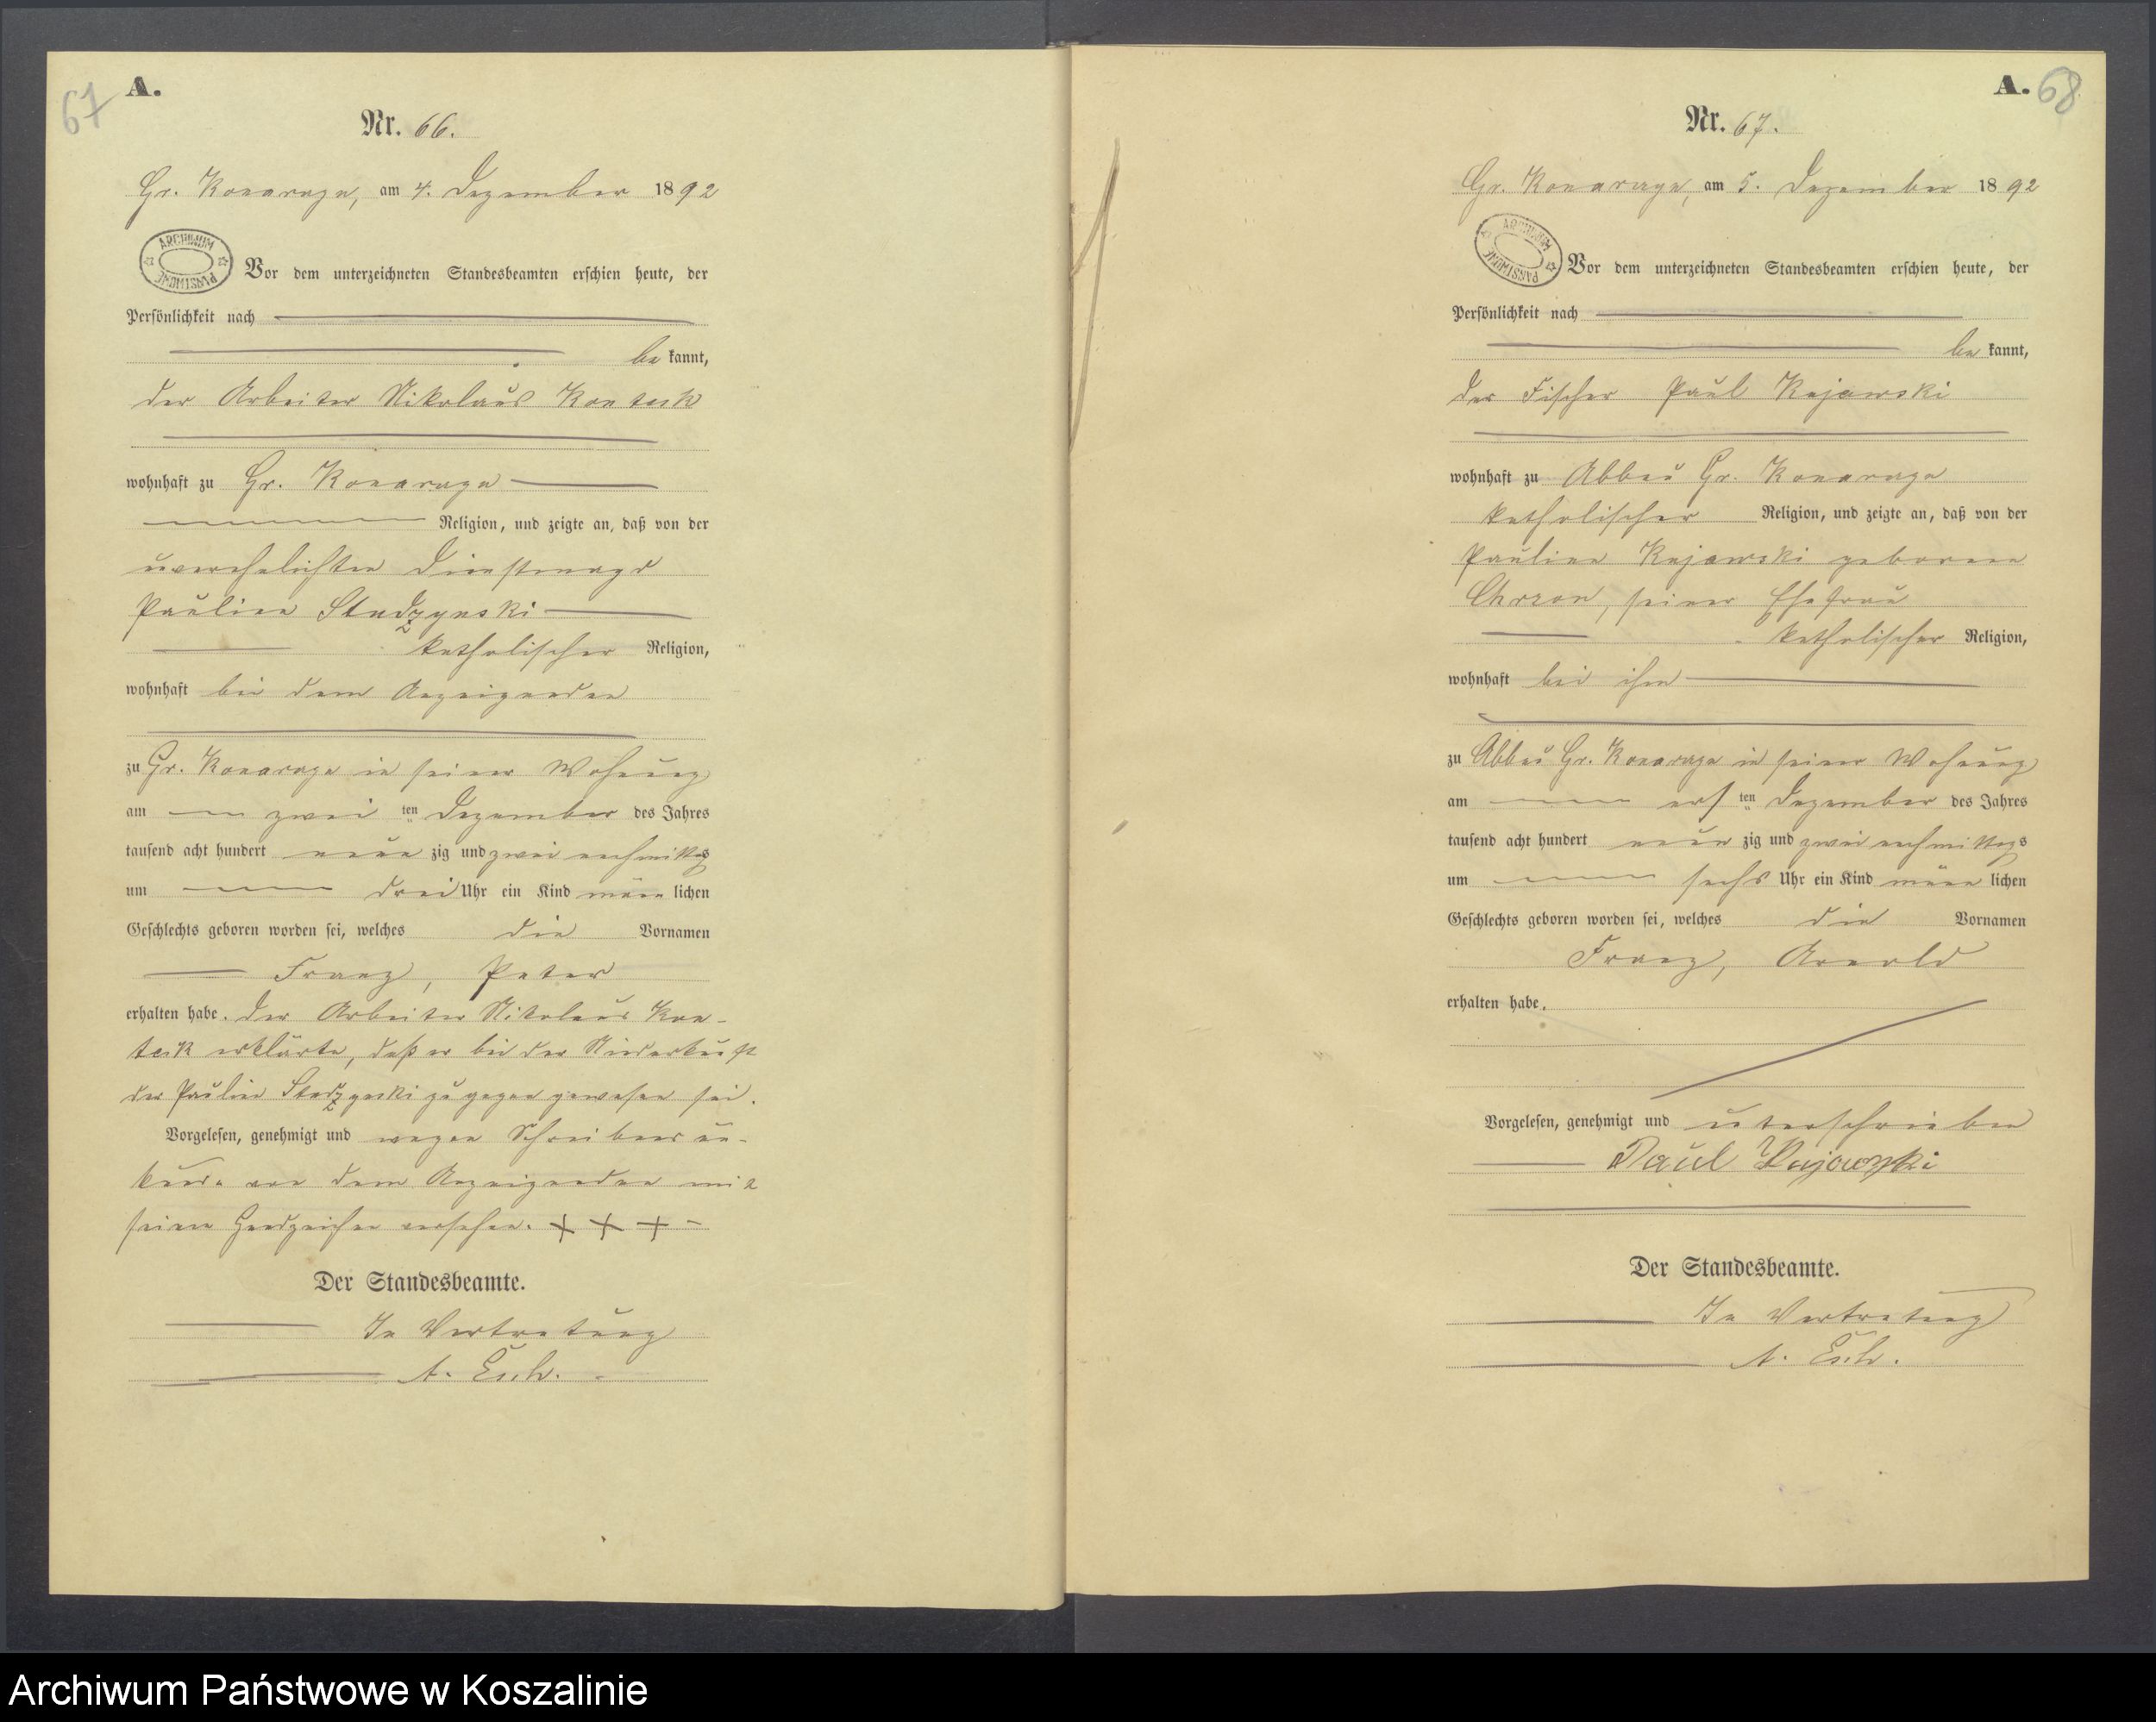 67
A.
Nr. 66.
Gr. Konarzyn, am 4. Dezember 1892
ARCHIWUM
PAŃSTWOWE
Vor dem unterzeichneten Standesbeamten erschien heute, der
Persönlichkeit nach
be kannt,
der Arbeiter Nikolaus Kontack
wohnhaft zu Gr. Konarzyn
Religion, und zeigte an, daß von der
unverehelichten Dienstmagd
Pauline Studzynski
katholischer Religion,
wohnhaft bei dem Anzeigenden
zu Gr. Konarzyn in seiner Wohnung
am zwei ten Dezember des Jahres
tausend acht hundert neun zig und zwei nachmittags
um drei Uhr ein Kind männ lichen
Geschlechts geboren worden sei, welches die Vornamen
Franz, Peter
erhalten habe. Der Arbeiter Nikolaus Kon-
tack erklärte, daß er bei der Niederkunft
der Pauline Studzynski zugegen gewesen sei.
Vorgelesen, genehmigt und wegen Schreibens un-
kunde von dem Anzeigenden mit
seinem Handzeichen versehen. + + + -
Der Standesbeamte.
In Vertretung
A. Esch.
A. 68
Nr. 67.
Gr. Konarzyn, am 5. Dezember 1892
ARCHIWUM
PAŃSTWOWE
Vor dem unterzeichneten Standesbeamten erschien heute, der
Persönlichkeit nach
be kannt,
der Fischer Paul Kujawski
wohnhaft zu Abbau Gr. Konarzyn
katholischer Religion, und zeigte an, daß von der
Pauline Kujawski geborene
Chrzon, seiner Ehefrau
katholischer Religion,
wohnhaft bei ihm
zu Abbau Gr. Konarzyn in seiner Wohnung
am ers ten Dezember des Jahres
tausend acht hundert neun zig und zwei nachmittags
um sechs Uhr ein Kind männ lichen
Geschlechts geboren worden sei, welches die Vornamen
Franz, Arnold
erhalten habe.
Vorgelesen, genehmigt und unterschrieben
Paul Kujawski
Der Standesbeamte.
In Vertretung
A. Esch.
Archiwum Państwowe w Koszalinie